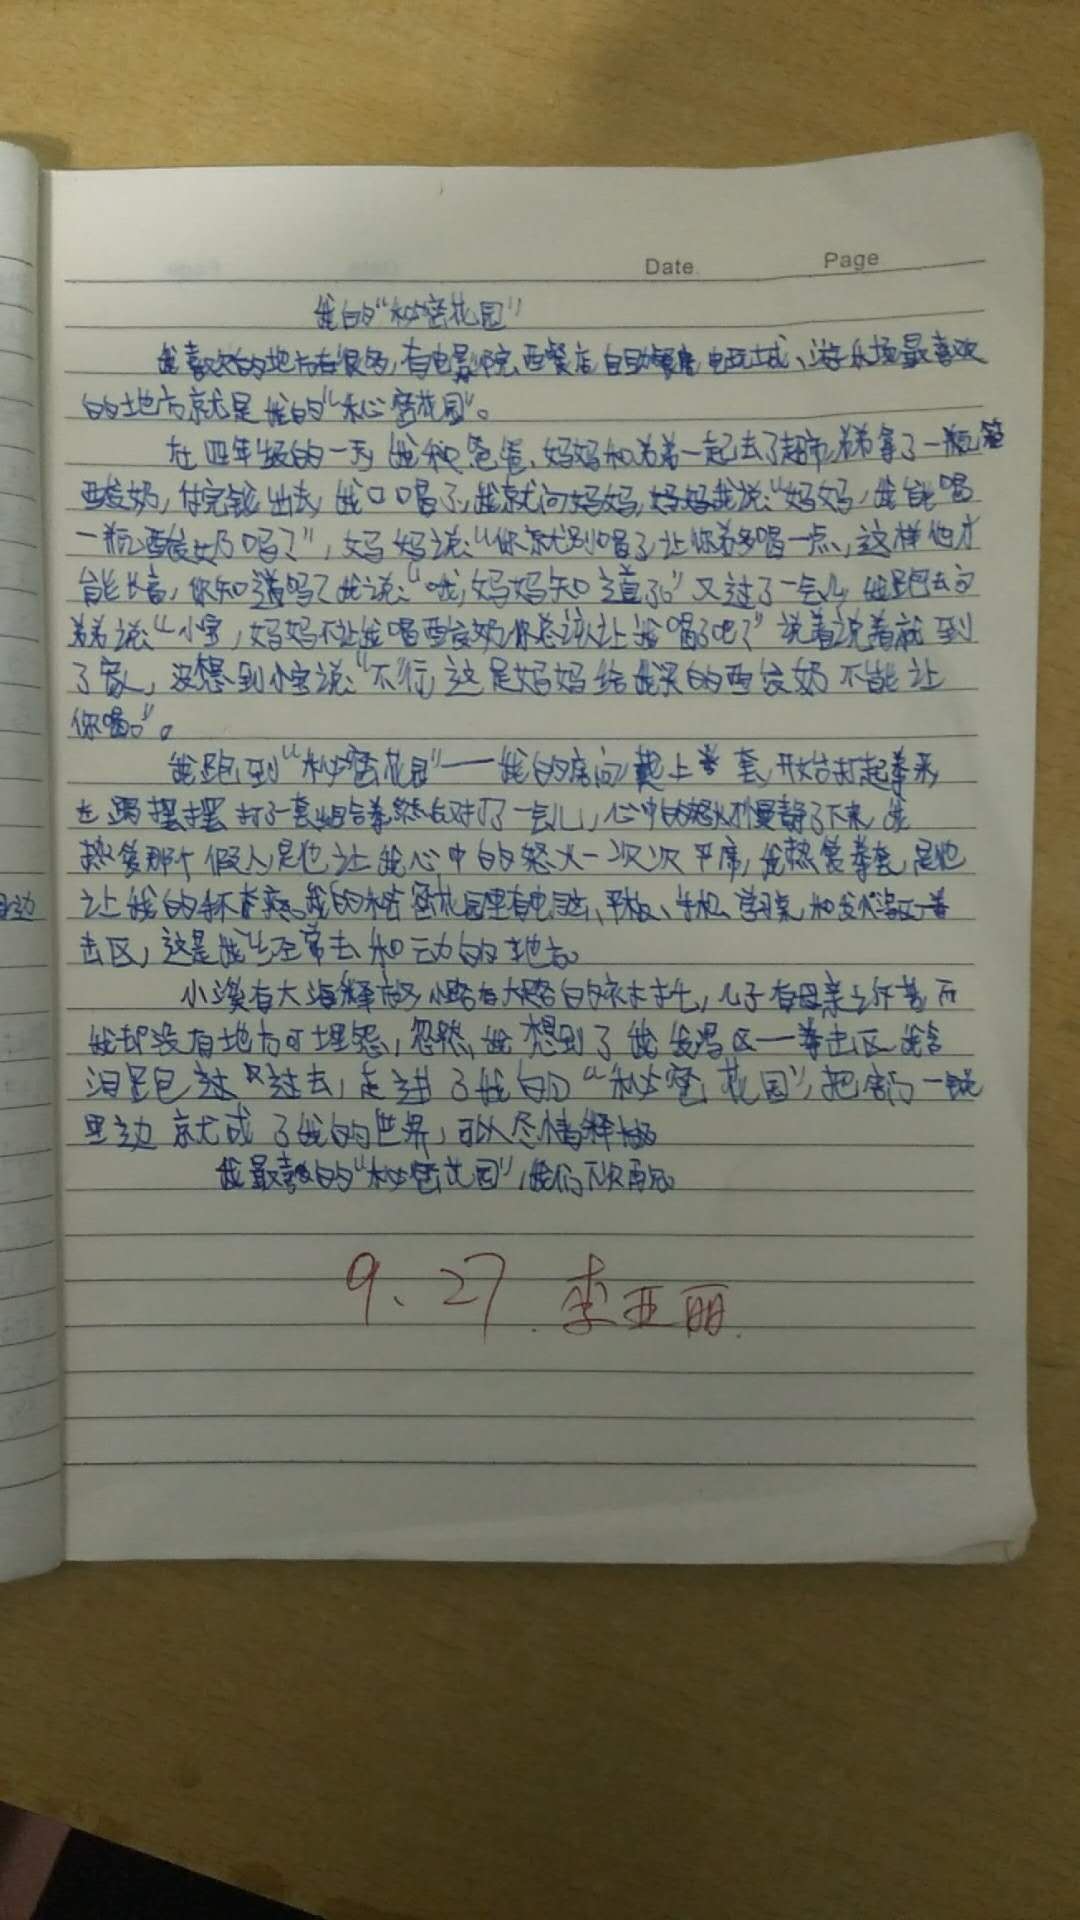 Date Page
我的“秘密花园”
我喜欢的地方有很多,有电影院、西餐店、自助餐店、电玩城、游乐场最喜欢
的地方就是我的“秘密花园”。
在四年级的一天我和爸爸、妈妈和弟弟一起去了超市,弟弟拿了一瓶
酸奶,付完钱出去,我口喝了,我就问妈妈,妈妈我说:“妈妈,我能喝
一瓶酸奶吗?”,妈妈说:“你就别喝了,让你弟多喝一点,这样他才
能长高,你知道吗?我说:“哦,妈妈知道了。”又过了一会儿,我跑去问
弟弟说:“小宝,妈妈不让我喝酸奶你总该让我喝了吧?”说着说着就到
了家,没想到小宝说:“不行,这是妈妈给我买的酸奶不能让
你喝。”。
我跑到“秘密花园”——我的房间,戴上拳套,开始打起拳来,
左摆打了一套组合拳然后对打了一会儿,心中的怒火慢静了下来,我
热爱那个假人,是他让我心中的怒火一次次平席,我热爱拳套,是他
让我的手不疼。我的秘密花园里有电脑、平板、手机、书桌和发泄区一拳
击区,这是我经常去和运动的地方。
小溪有大海释放,小路有大路的衬托,儿子有母亲之怀抱,而
我却没有地方可埋怨,忽然,我想到了我发泄区一拳击区,我含
泪跑过去,走进了我的“秘密花园”,把房门一锁
里边就成了我的世界,可以尽情释放
我最喜欢的“秘密花园”,我们下次再见。
9.27.李亚丽.